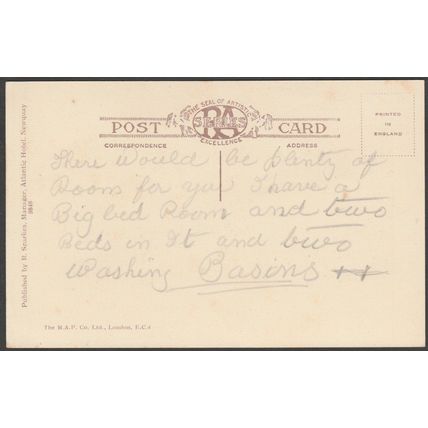 THE SEAL OF ARTISTIC
RA
SERIES
EXCELLENCE
POST CARD
CORRESPONDENCE
ADDRESS
PRINTED
IN
ENGLAND
There would be plenty of
Room for you I have a
Big bed Room and two
Beds in It and two
Washing Basins
Published by R. Manager, Atlantic Hotel, Newquay
The M.A.P. Co. Ltd., London, E.C.4